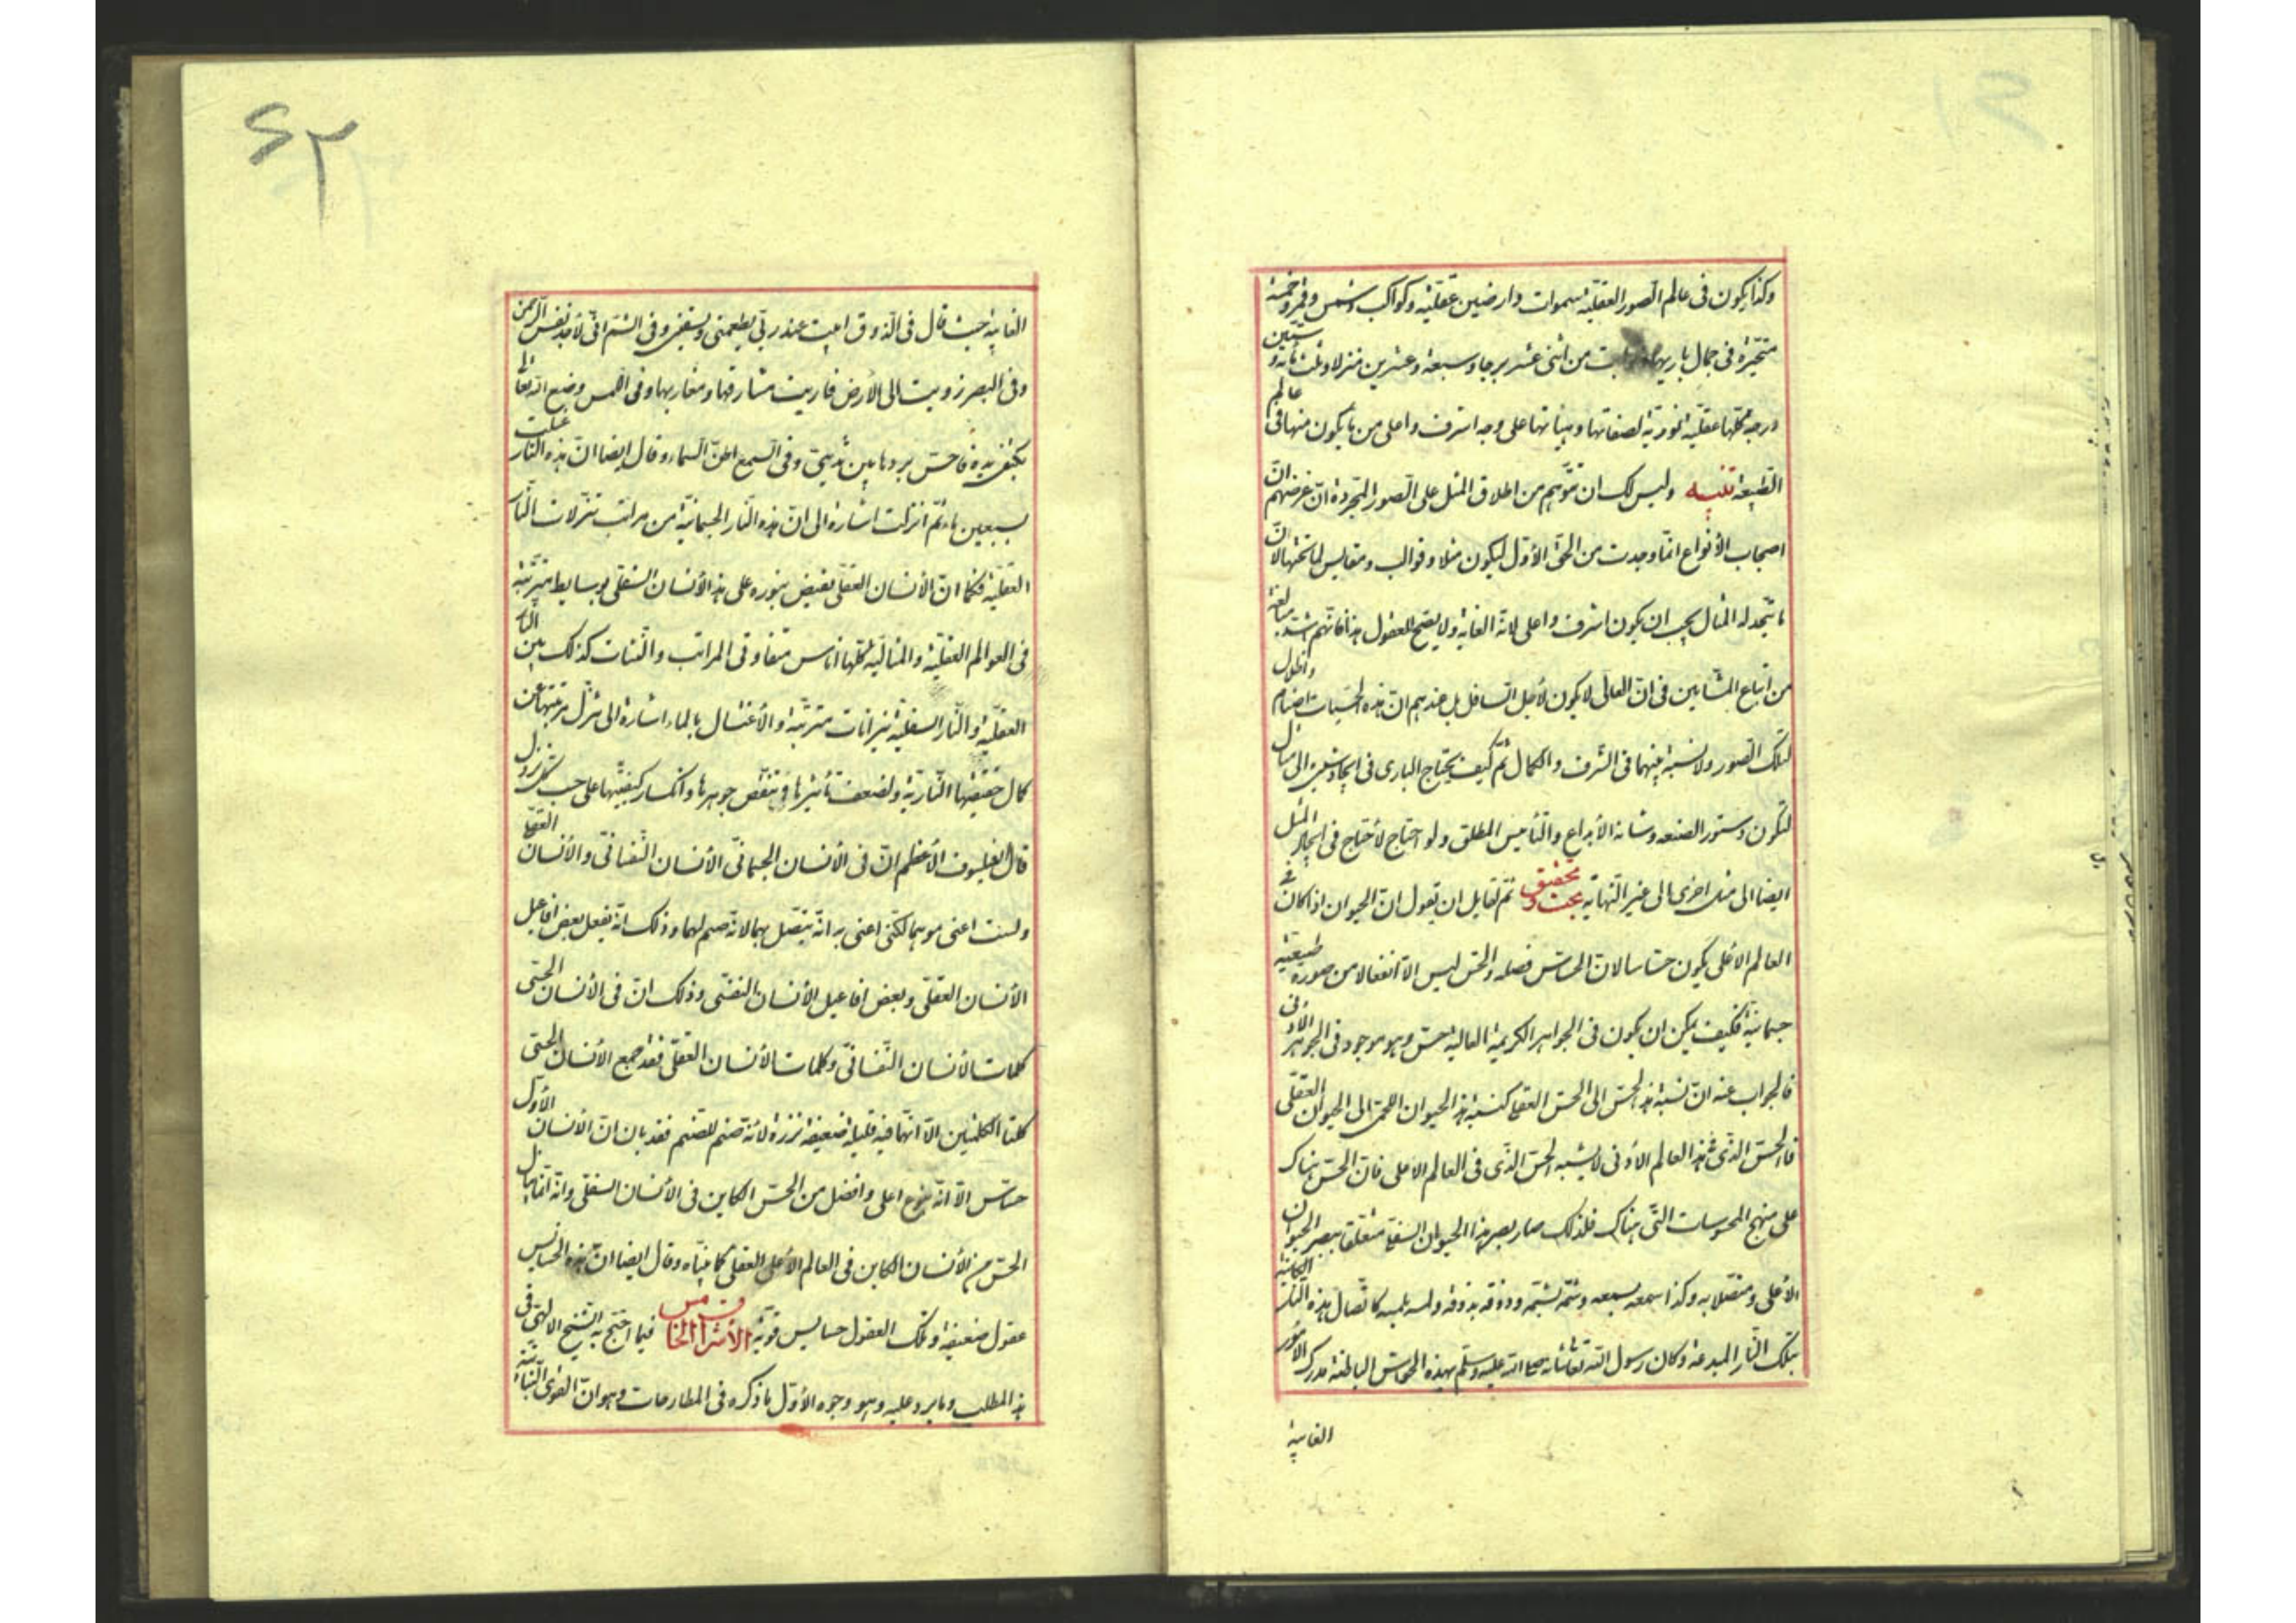 وكذا يكون فى عالم الصور العقلية سموات وارضين عقلية وكواكب وشمس وقمر وخمسة
متحيرة فى جمال باريها وثوابت من اثنى عشر برجا وسبعة وعشرين منزلا وثلث مائة و ستين
درجة كلها عقلية نورية لصفاتها وهيئاتها على وجه اشرف واعلى من ما يكون منها فى عالم
الطبيعة تنبيه وليس لك ان تتوهم من اطلاق المثل على الصور المجردة ان غرضهم ان
اصحاب الأنواع انما وجدت من الحق الأول ليكون مثلا وقوالب ومقاييس لما تحتها لان
ما يتخذ له المثال يجب ان يكون اشرف واعلى لانه الغاية ولا يصح للعقول هذا فانهم اشد مبالغة
من اتباع المشايين فى ان العالى لا يكون لأجل السافل بل عندهم ان هذه الحسيات اصنام واظلال
لتلك الصور ولا نسبة بينهما فى الشرف والكمال ثم كيف يحتاج البارى فى ايجاد شىء الى مثال
لتكون دستور الصنعه وشانه الأبداع والتأييس المطلق ولو احتاج لأحتاج فى ايجاد المثل
ايضا الى مثل اخرى الى غير النهاية بحث وتحقيق ثم لقايل ان يقول ان الحيوان اذا كان فى
العالم الأعلى يكون حساسا لان الحساس فصله والحس ليس الا انفعالا من صورة طبيعية
جسمانية فكيف يمكن ان يكون فى الجواهر الكريمة العالية حس وهو موجود فى الجوهر الأدنى
فالجواب عنه ان نسبة هذا الحس الى الحس العقلى كنسبة هذا الحيوان اللحمى الى الحيوان العقلى
فالحس الذى فى هذا العالم الأدنى لا يشبه الحس الذى فى العالم الأعلى فان الحس هناك
على منهج المحسوسات التى هناك فلذلك صار بصر هذا الحيوان السفلى متعلقا ببصر الحيوان
الأعلى ومتصلا به وكذا سمعه بسمعه وشمه بشمه وذوقه بذوقه ولمسه بلمسه كاتصال هذه النار الكائنة
بتلك النار المبدعة وكان رسول الله تعالى شانه صلى الله عليه وسلم بهذه الحواس الباطنة مدرك الأمور
الغايبة
٦٢
الغايبة حيث قال فى الذوق ابيت عند ربى يطعمنى ويسقين وفى الشم انى لأجد نفس الرحمن
وفى البصر زويت الى الأرض فاريت مشارقها ومغاربها وفى اللمس وضع الله تعالى
بكتفى يده فاحس بردها بين ثديى وفى السمع اطت السماء وقال ايضا ان هذه النار غسلت
بسبعين ماء ثم انزلت اشارة الى ان هذه النار الجسمانية من مراتب تنزلات النار
العقلية فكما ان الأنسان العقلى يفيض بنوره على هذا الأنسان السفلى بوسايط مترتبة
فى العوالم العقلية والمثالية كلها اناس متفاوتى المراتب والنشات كذلك بين النار
العقلية والنار السفلية نيرانات مترتبة والأغتسال بالماء اشارة الى تنزل مرتبتها عن
كمال حقيقتها النارية ولضعف تأثيرها فى تنقص جوهرها وانكسار كيفيتها على حسب كل نزول
قال الفيلسوف الأعظم ان فى الأنسان الجسمانى الأنسان النفسانى والأنسان العقلى
ولست اعنى هو هما لكنى اعنى به انه يتصل بهما لانه صنم لهما وذلك انه يفعل بعض افاعيل
الأنسان العقلى وبعض افاعيل الأنسان النفسى وذلك ان فى الأنسان الحسى
كلمات الأنسان النفسانى وكلمات الأنسان العقلى فقد جمع الأنسان الحسى
كلتا الكلمتين الا انهما فيه قليلة ضعيفة نزرة لأنه صنم للصنم فقد بان ان الأنسان الأول
حساس الا انه بنوع اعلى وافضل من الحس الكاين فى الأنسان السفلى وانه انما ينال
الحس من الأنسان الكاين فى العالم الأعلى العقلى كما بيناه وقال ايضا ان هذه الحسايس
عقول ضعيفة وتلك العقول حسايس قوية الأشراق الخامس فيما احتج به الشيخ الالهى فى
هذا المطلب وما يرد عليه وهو وجوه الأول ما ذكره فى المطارحات وهو ان القوى النباتية